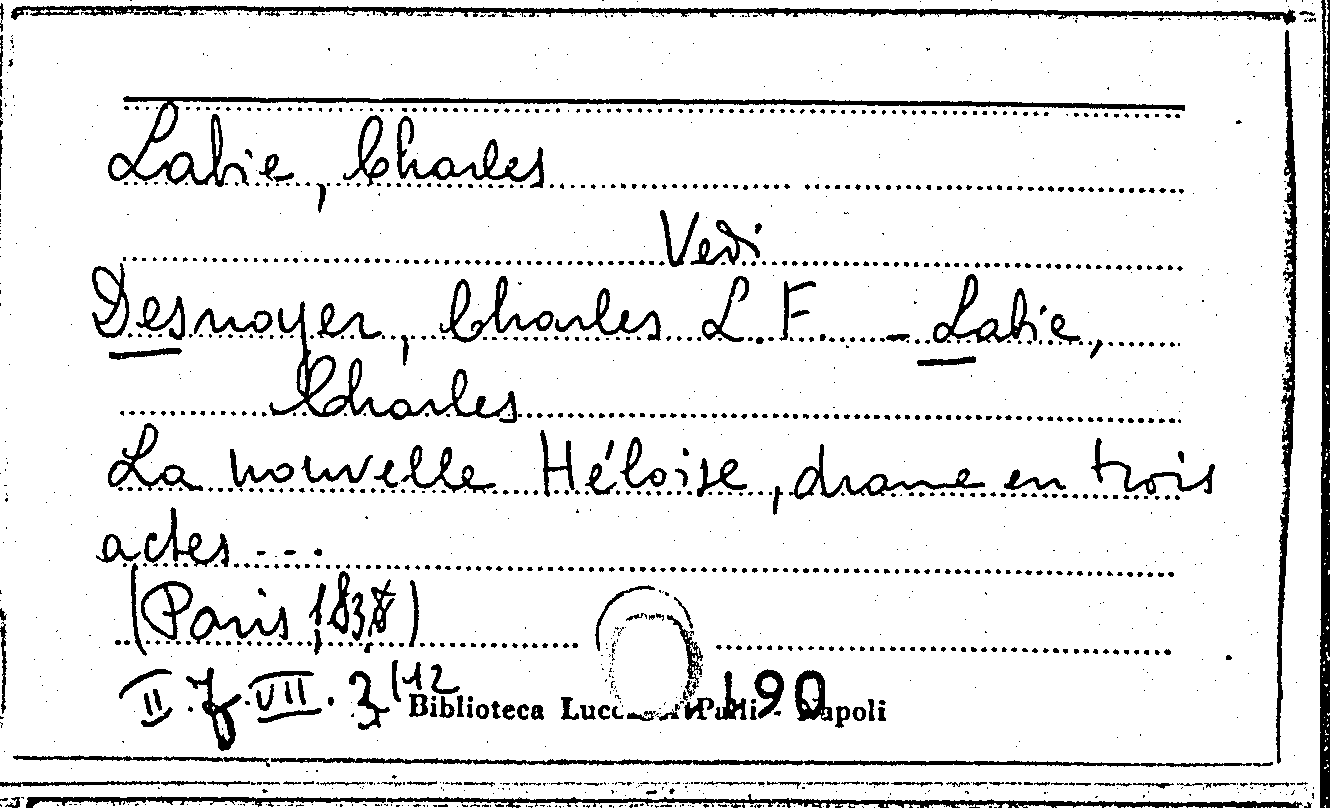 Labie, Charles
Vedi
Desnoyer, Charles L.F. - Labie,
Charles
La nouvelle Héloise, drame en trois
actes...
(Paris, 1838)
II. 7. VII. 3/12
Biblioteca Lucchesi Palli - Napoli
190